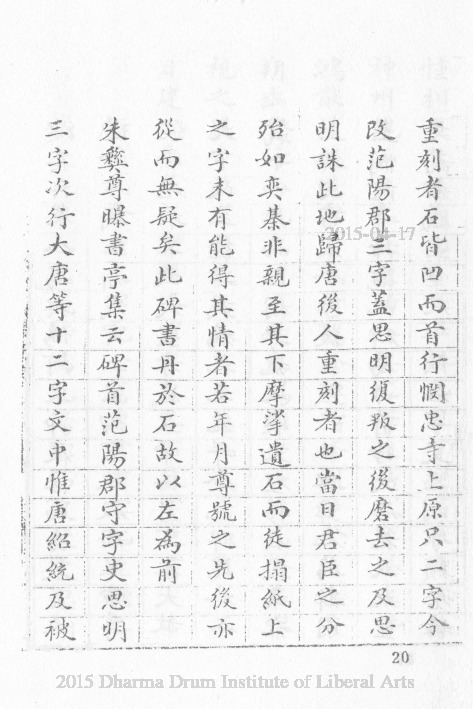 重刻者石皆凹而首行憫忠寺上原只二字今
改范陽郡三字蓋思明復叛之後磨去之及思
明誅此地歸唐後人重刻者也當日君臣之分
殆如奕棊非親至其下摩挲遺石而徒搨紙上
之字未有能得其情者若年月尊號之先後亦
從而無疑矣此碑書丹於石故以左為前
朱彝尊曝書亭集云碑首范陽郡守字史思明
三字次行大唐等十二字文中惟唐紹統及被
2015-04-17
20
2015 Dharma Drum Institute of Liberal Arts